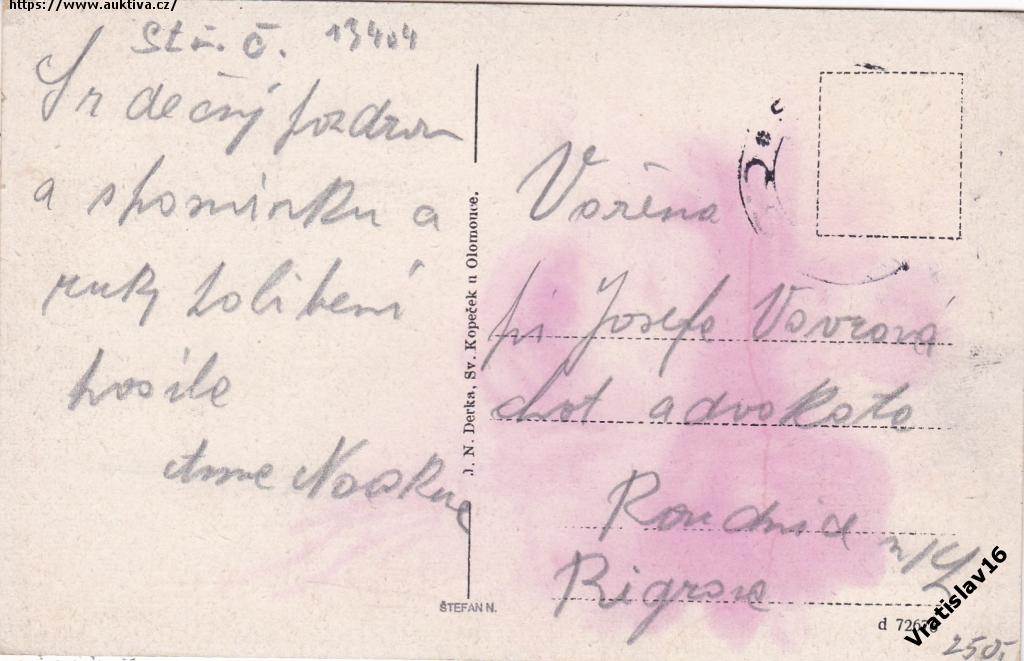 https://www.auktiva.cz/
Str. č. 13404
Srdečný pozdrav
a spomínku a
ruky políbení
posíla
Anna
J. N. Derka, Sv. Kopeček u Olomouce.
ŠTEFAN N.
Vážená
pí Josefa Vavrová
chot advokáta
Roudnice n/L
Rigrova
d 7267
Vratislav16
250.